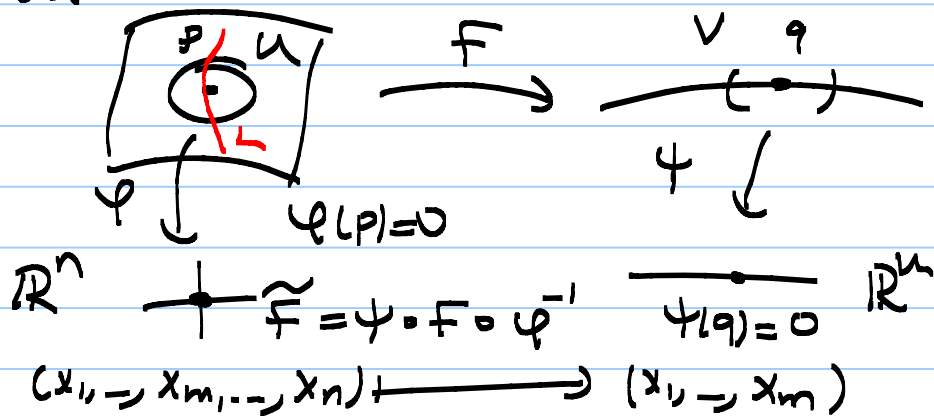 P U F V q
L
φ ψ
φ(p)=0
ℝⁿ F̃ = ψ∘F∘φ⁻¹ ψ(q)=0 ℝᵐ
(x₁,–, x_m,..–, x_n) ⟼ (x₁,–, x_m)